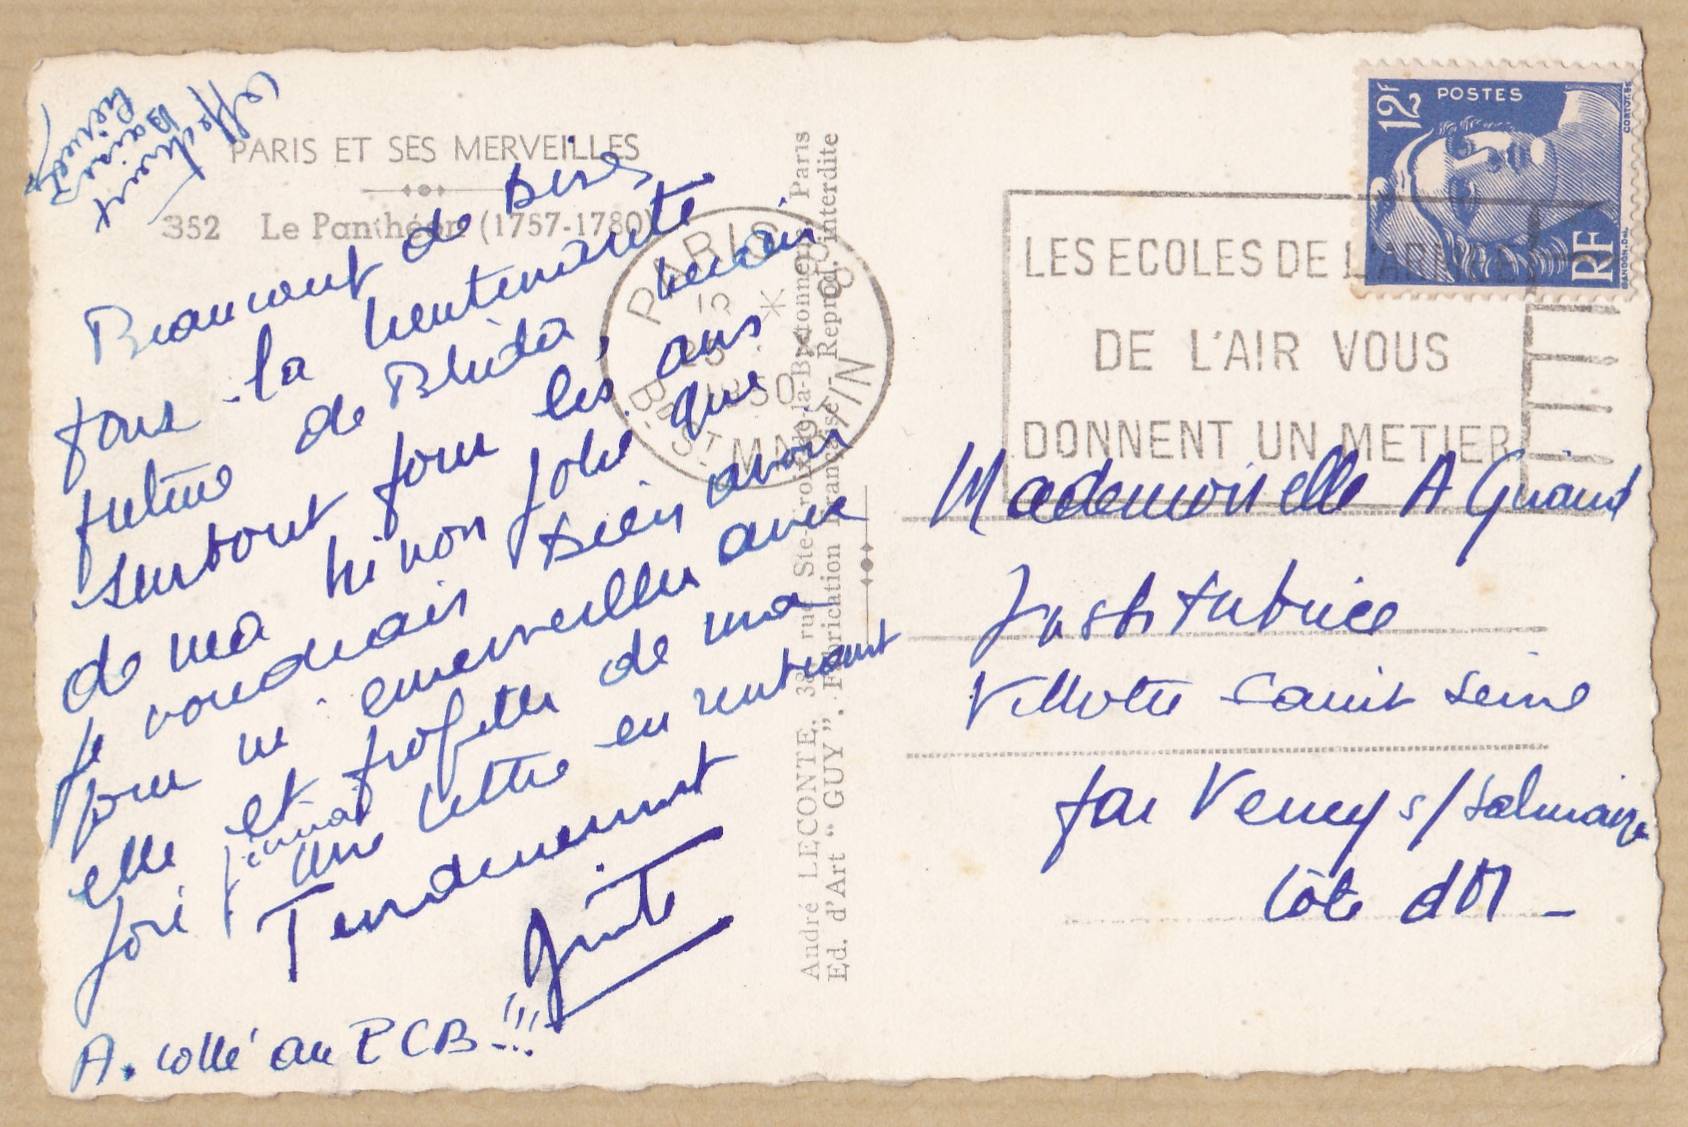 PARIS ET SES MERVEILLES
352 Le Panthéon (1757-1780)
Beaucoup de bises
pour la lieutenante
future de Blida, merci
surtout pour les ans
de ma ninon jolie que
je voudrais bien avoir
pour m'émerveiller avec
elle et profiter de ma
José j'
une lettre en rentrant
Tendrement
A. collé au PCB !!!
André LECONTE, 38 rue Ste-Croix-de-la-Bretonnerie Paris
Ed. d'Art "GUY". Fabrication Française - Reprod. interdite
PARIS 98
15 *
1950
Bd ST MARTIN
LES ECOLES DE L'ARMEE
DE L'AIR VOUS
DONNENT UN METIER
12F POSTES
RF
Mademoiselle A Guiard
Institutrice
Villotte Saint Seine
par Verrey s/Salmaise
Côte d'Or -